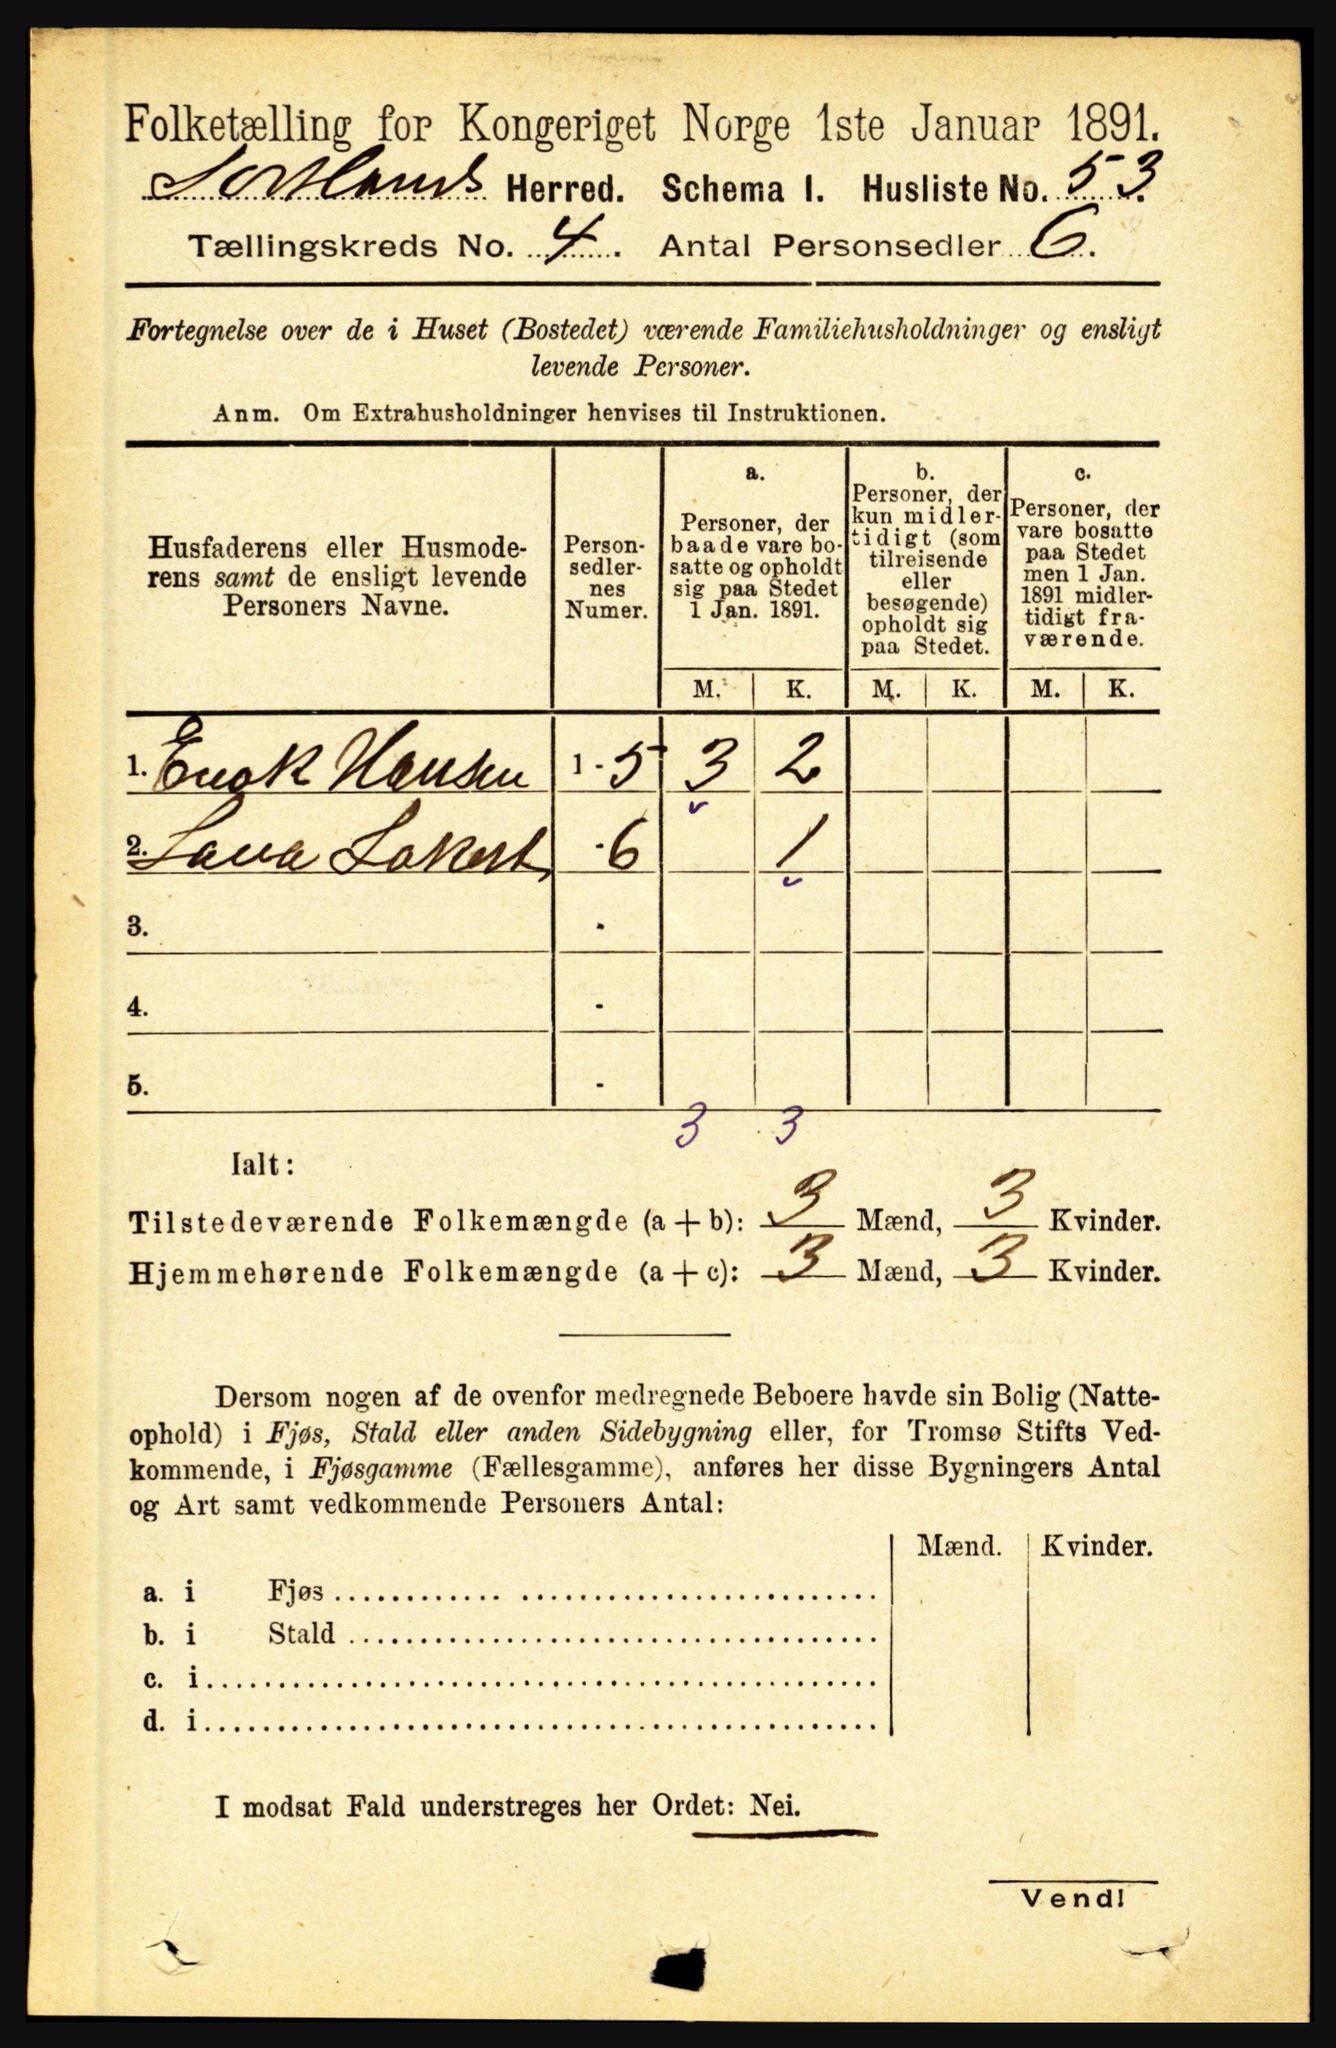 Folketælling for Kongeriget Norge 1ste Januar 1891.
Sortlands Herred. Schema I. Husliste No. 53
Tællingskreds No. 4. Antal Personsedler 6.
Fortegnelse over de i Huset (Bostedet) værende Familiehusholdninger og ensligt
levende Personer.
Anm. Om Extrahusholdninger henvises til Instruktionen.
Husfaderens eller Husmode-
rens samt de ensligt levende
Personers Navne.
Person-
sedler-
nes
Numer.
a.
Personer, der
baade vare bo-
satte og opholdt
sig paa Stedet
1 Jan. 1891.
b.
Personer, der
kun midler-
tidigt (som
tilreisende
eller
besøgende)
opholdt sig
paa Stedet.
c.
Personer, der
vare bosatte
paa Stedet
men 1 Jan.
1891 midler-
tidigt fra-
værende.
M. K. M. K. M. K.
1. Enok Hansen 1 - 5 3 2
2. Lava Lakert - 6 1
3. -
4. -
5. -
3 3
Ialt:
Tilstedeværende Folkemængde (a + b): 3 Mænd, 3 Kvinder.
Hjemmehørende Folkemængde (a + c): 3 Mænd, 3 Kvinder.
Dersom nogen af de ovenfor medregnede Beboere havde sin Bolig (Natte-
ophold) i Fjøs, Stald eller anden Sidebygning eller, for Tromsø Stifts Ved-
kommende, i Fjøsgamme (Fællesgamme), anføres her disse Bygningers Antal
og Art samt vedkommende Personers Antal:
Mænd. Kvinder.
a. i Fjøs
b. i Stald
c. i
d. i
I modsat Fald understreges her Ordet: Nei.
Vend!